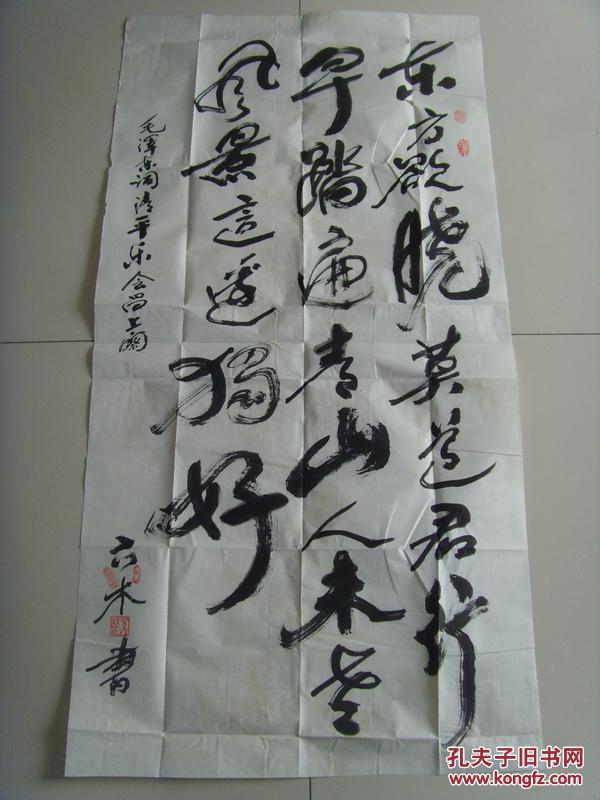 东方欲晓莫道君行
早踏遍青山人未老
风景這邊獨好
毛泽东词清平乐会昌上阕
六木書
孔夫子旧书网
www.kongfz.com